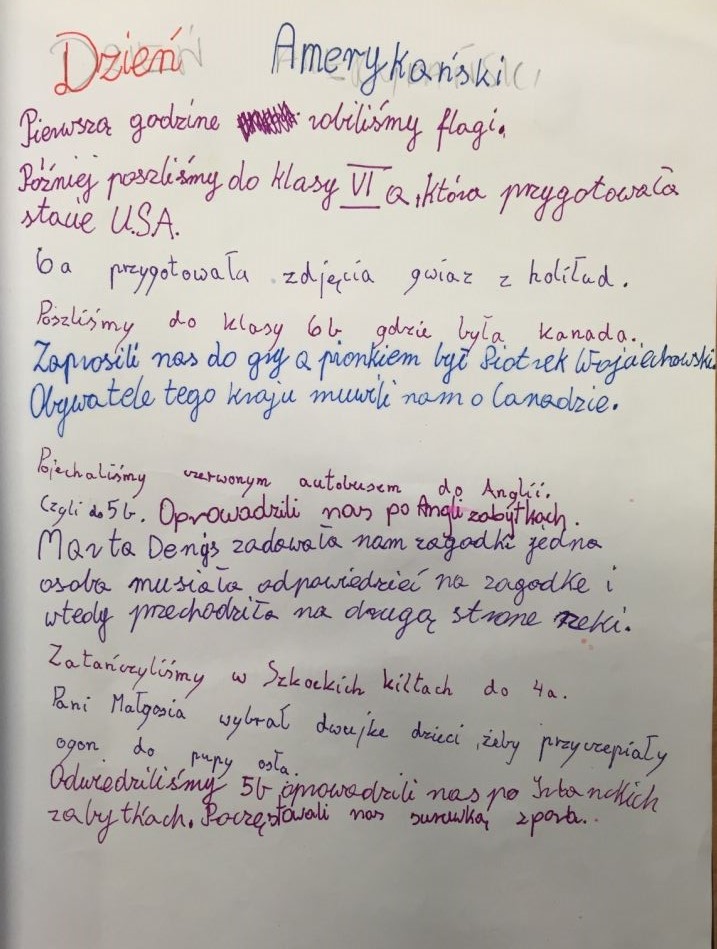 Dzień Amerykański
Pierwszą godzine robiliśmy flagi.
Później poszliśmy do klasy VI a, która przygotowała
stacie U.S.A.
6a przygotowała zdjęcia gwiaz z holiłud.
Poszliśmy do klasy 6b gdzie była kanada.
Zaprosili nas do gry a pionkiem był Piotrek Wojciechowski.
Obywatele tego kraju muwili nam o Canadzie.
Pojechaliśmy czerwonym autobusem do Anglii.
Czyli do 5b. Oprowadzili nas po Angli zabytkach.
Marta Denys zadowała nam zagadki jedna
osoba musiała odpowiedzieć na zagodke i
wtedy przechodziła na drugą strone rzeki.
Zatańczyliśmy w Szkockich kiltach do 4a.
Pani Małgosia wybrał dwujke dzieci, żeby przyczepiały
ogon do pupy osła.
Odwiedziliśmy 5b opowodzili nas po
zabytkach. Poczęstowali nas suruwką z pora.